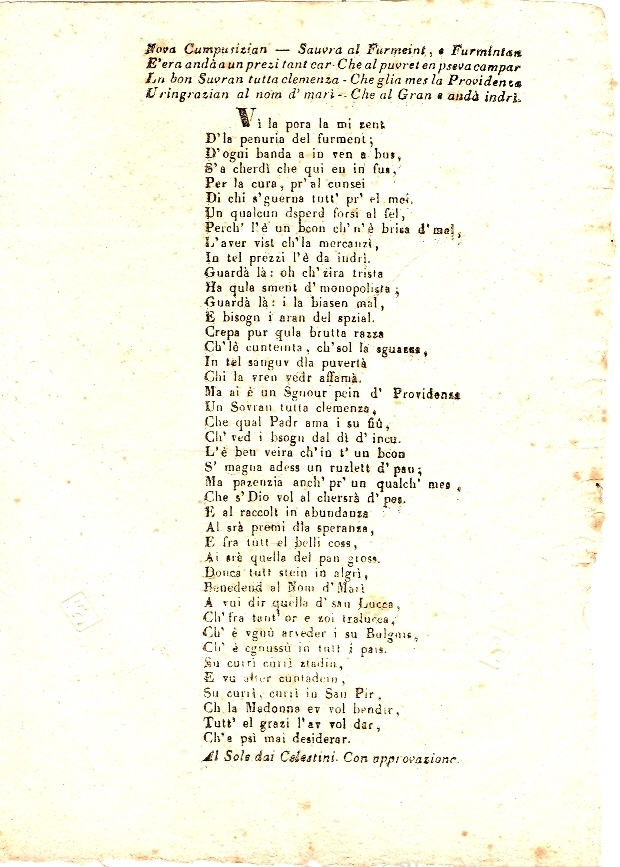 Nova Cumpusizian — Sauvra al Furmeint, e Furmintan
E'era andà a un prezi tant car - Che al puvret en pseva campar
Un bon Suvran tutta clemenza - Che glia mes la Providenza
Uringrazian al nom d' marì - Che al Gran e andà indrì.
Vi la pora la mi zent
D'la penuria del furment;
D'ogni banda a in ven a bus,
S'a cherdì che qui en in fus,
Per la cura, pr'al cunsei
Di chi s'guerna tutt' pr' el mei.
Un qualcun dsperd forsi al fel,
Perch' l'è un bcon ch'n'è brisa d'mel,
L'aver vist ch'la mercanzì,
In tel prezzi l'è da indrì.
Guardà là: oh ch'zira trista
Ha qula sment d'monopolista;
Guardà là: i la biasen mal,
E bisogn i aran del spzial.
Crepa pur qula brutta razza
Ch'lè cunteinta, ch'sol la sguazza,
In tel sanguv dla puvertà
Chi la vren vedr affamà.
Ma ai è un Sgnour pein d' Providenza
Un Sovran tutta clemenza,
Che qual Padr ama i su fiù,
Ch' ved i bsogn dal dì d' incu.
L'è ben veira ch'in t' un bcon
S' magna adess un ruzlett d'pan;
Ma pazenzia anch' pr' un qualch' mes,
Che s'Dio vol al chersrà d' pes.
E al raccolt in abundanza
Al srà premi dla speranza,
E fra tutt el belli coss,
Ai srè quella del pan gross.
Donca tutt stein in algrì,
Benedend al Nom d'Marì
A vui dir quella d'san Lucca,
Ch'fra tant' or e zoi tralucca,
Ch' è vgnù arveder i su Bulgnis,
Ch' è cgnussù in tutt i pais.
Su currì currì ztadin,
E vu alter cuntadein,
Su currì, currì in San Pir,
Ch la Madonna ev vol bendir,
Tutt' el grazi l'av vol dar,
Ch'a psì mai desiderar.
Al Sole dai Celestini. Con approvazione.